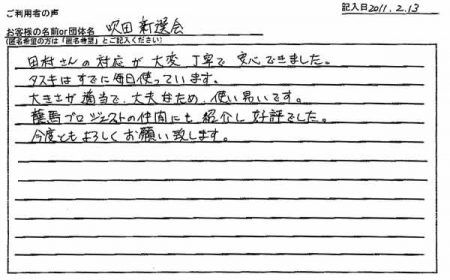 ご利用者の声
記入日 2011.2.13
お客様の名前or団体名 吹田 新選会
(匿名希望の方は「匿名希望」とご記入ください)
田村さんの対応が大変丁寧で安心できました。
タスキはすでに毎日使っています。
大きさが適当で、大夫なため、使い易いです。
龍馬プロジェストの仲間にも紹介し好評でした。
今度ともよろしくお願い致します。